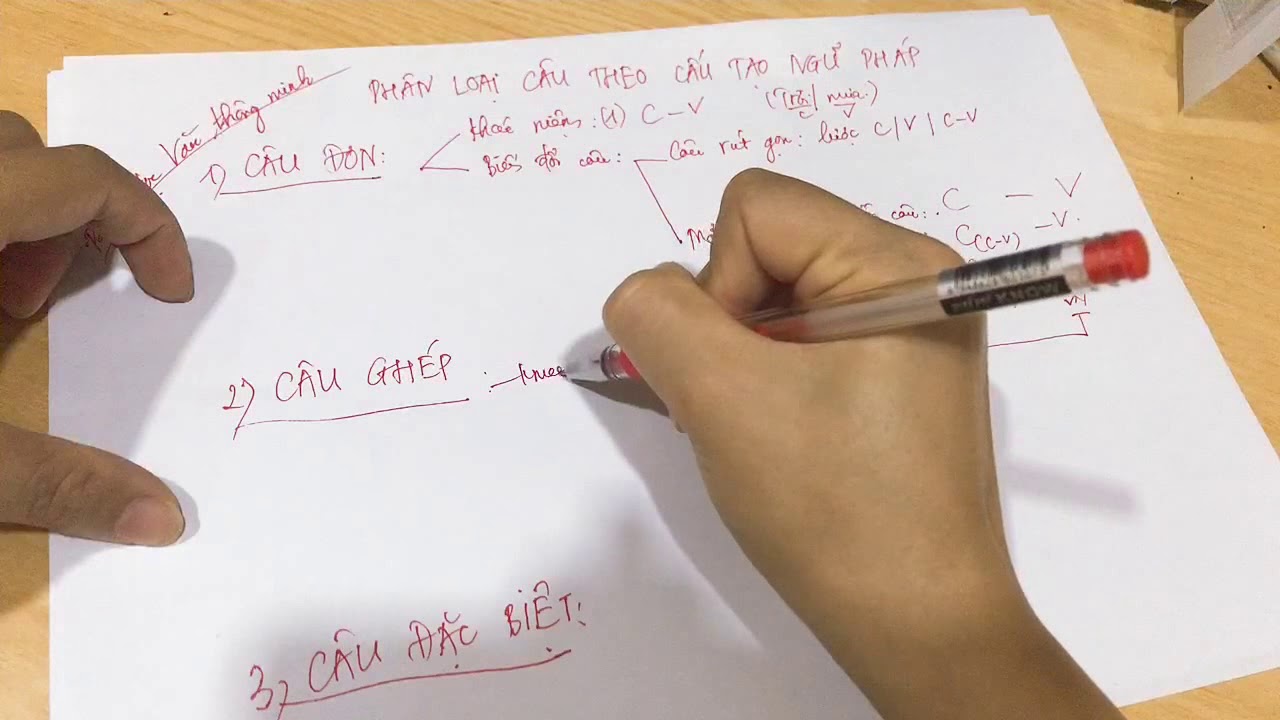 PHÂN LOẠI CÂU THEO CẤU TẠO NGỮ PHÁP
Văn thông minh
1) CÂU ĐƠN:
khái niệm: (1) C – V
(Trời / mưa.)
C V
Biến đổi câu:
Câu rút gọn: lược C / V / C-V
câu: C – V
C(C-V) – V.
VN
2) CÂU GHÉP :
3) CÂU ĐẶC BIỆT: